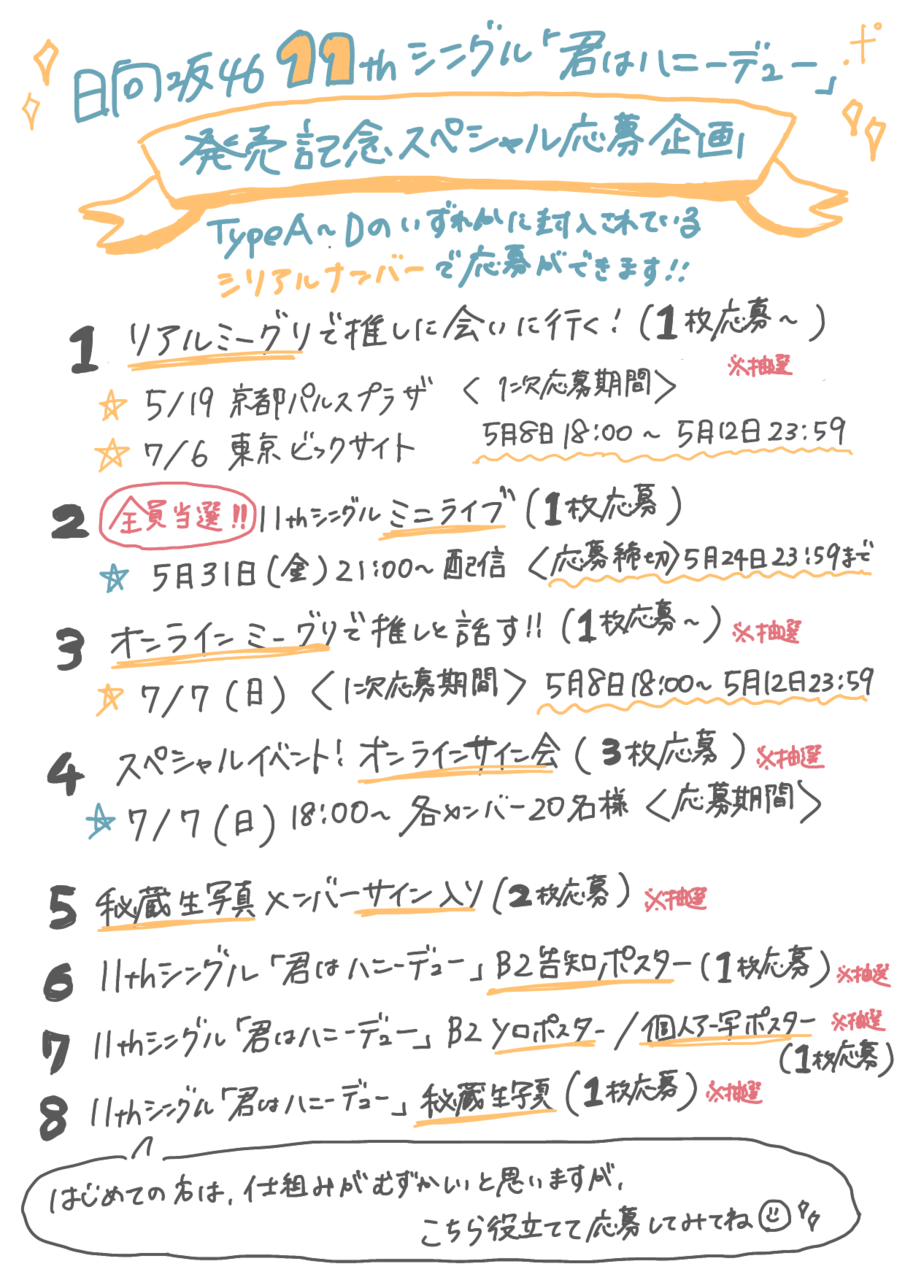 日向坂46 11thシングル「君はハニーデュー」
発売記念スペシャル応募企画
TypeA〜Dのいずれかに封入されている
シリアルナンバーで応募ができます!!
1 リアルミーグリで推しに会いに行く!(1枚応募〜)
※抽選
☆ 5/19 京都パルスプラザ 〈1次応募期間〉
☆ 7/6 東京ビックサイト 5月8日18:00〜5月12日23:59
2 全員当選!! 11thシングルミニライブ(1枚応募)
☆ 5月31日(金)21:00〜配信〈応募締切〉5月24日23:59まで
3 オンラインミーグリで推しと話す!!(1枚応募〜)※抽選
☆ 7/7(日)〈1次応募期間〉5月8日18:00〜5月12日23:59
4 スペシャルイベント!オンラインサイン会(3枚応募)※抽選
☆ 7/7(日)18:00〜各メンバー20名様〈応募期間〉
5 秘蔵生写真メンバーサイン入り(2枚応募)※抽選
6 11thシングル「君はハニーデュー」B2告知ポスター(1枚応募)※抽選
7 11thシングル「君はハニーデュー」B2ソロポスター/個人アー写ポスター ※抽選
(1枚応募)
8 11thシングル「君はハニーデュー」秘蔵生写真(1枚応募)※抽選
はじめての方は、仕組みがむずかいいと思いますが、
こちら役立てて応募してみてね